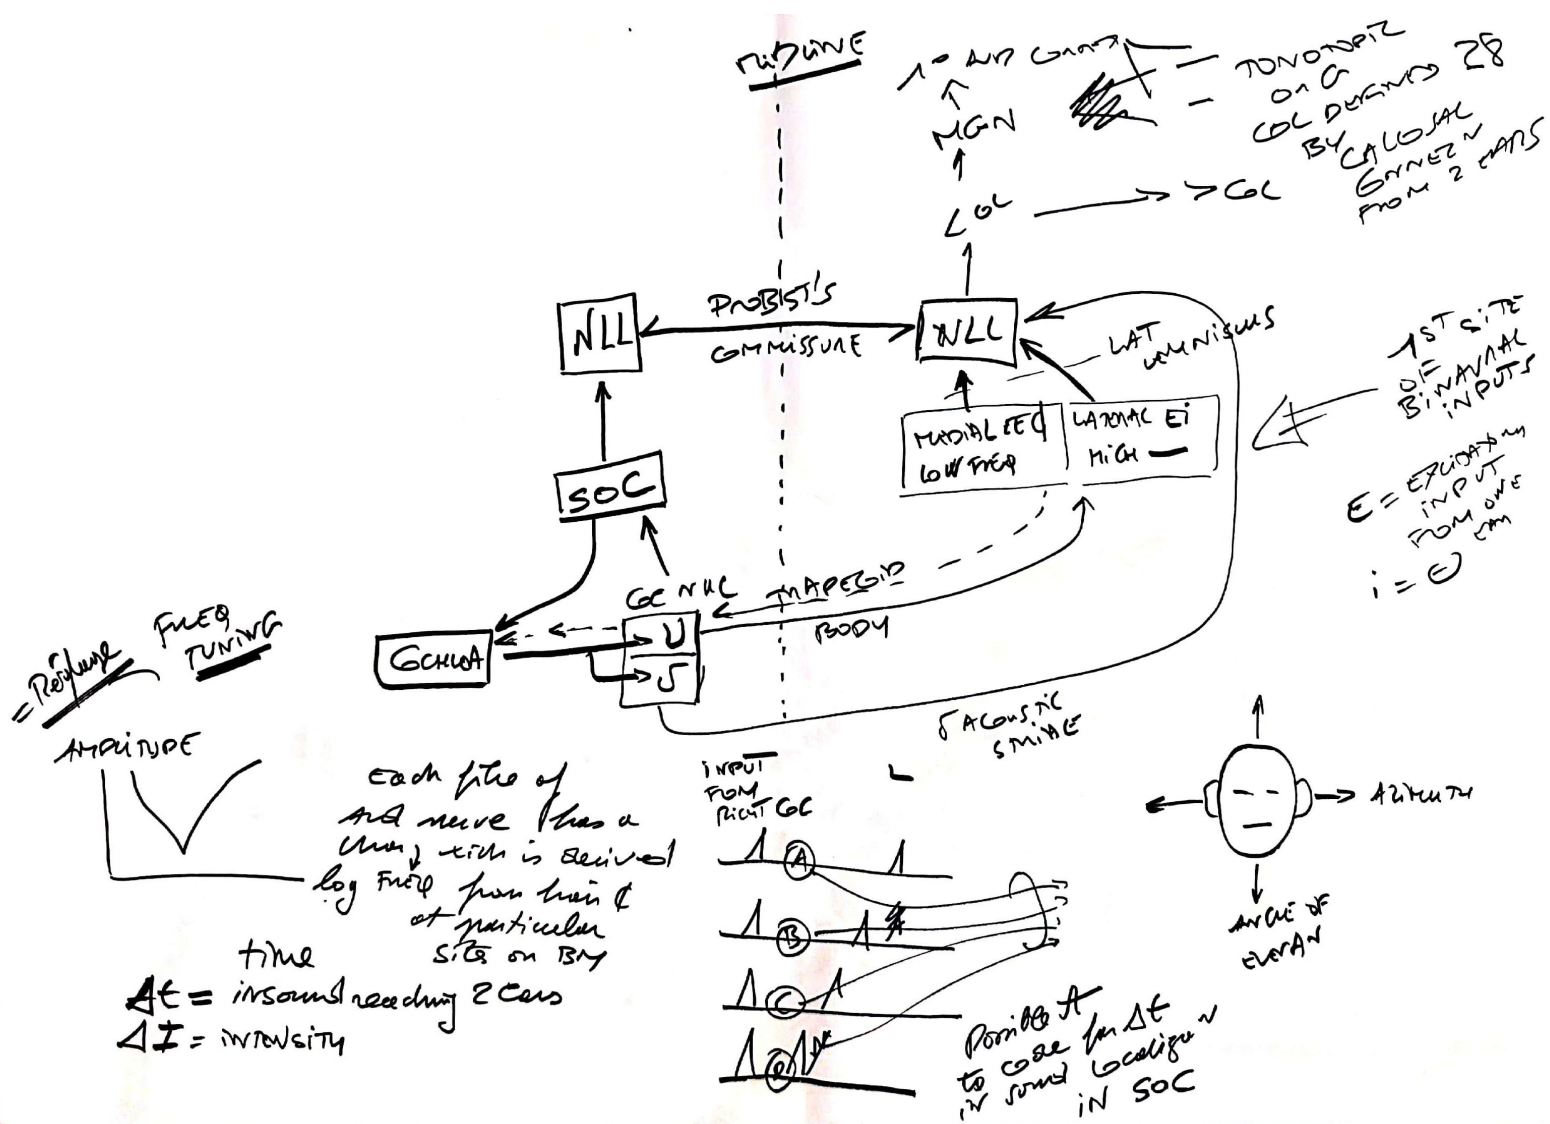 MIDLINE
1° AUD CORTEX
MGN
COL
> COL
- TONOTOPIC
ORG
- COL DEFINED
BY 28
CALOSAL
CONNEZN
FROM 2 EARS
NLL
PROBIST'S
COMMISSURE
NLL
LAT
LEMNISCUS
1ST SITE
OF
BINAURAL
INPUTS
MEDIAL EE
LOW FREQ
LATERAL EI
HIGH —
SOC
E = EXCITATORY
INPUT
FROM ONE
EAR
i = ⊖
COC NUC
TRAPEZOID
BODY
COCHLEA
U
ACOUSTIC
STRIAE
FREQ
TUNING
=
AMPLITUDE
log FREQ
Each fibre of
aud nerve has a
char, which is derived
from hair ¢
at particular
site on BM
time
Δt = in sound reaching 2 ears
ΔI = INTENSITY
INPUT
FROM
RIGHT COC
L
A
B
C
D
Possible
to code for Δt
in sound localizan
IN SOC
AZIMUTH
ANGLE OF
ELEVAN